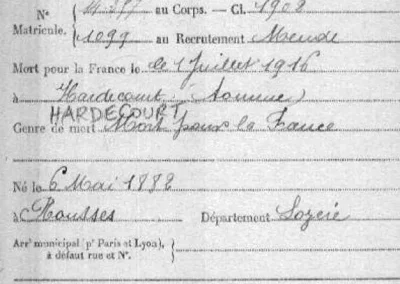 N° 14.287 au Corps. — Cl. 1908
Matricule. 1099 au Recrutement Mende
Mort pour la France le le 1 Juillet 1916
à Hardecourt (Somme)
HARDECOURT
Genre de mort Mort pour la France
Né le 6 Mai 1888
à Rousses Département Lozère
Arrt municipal (pr Paris et Lyon),
à défaut rue et N°.